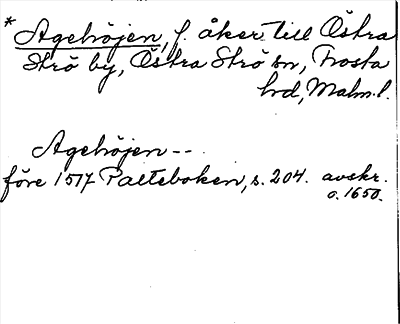 * Agehöjen, f. åker till Östra
Strö by, Östra Strö sn, Frosta
hd, Malm.l.
Agehöjen --
före 1517 Palteboken, s. 204. avskr.
o. 1650.